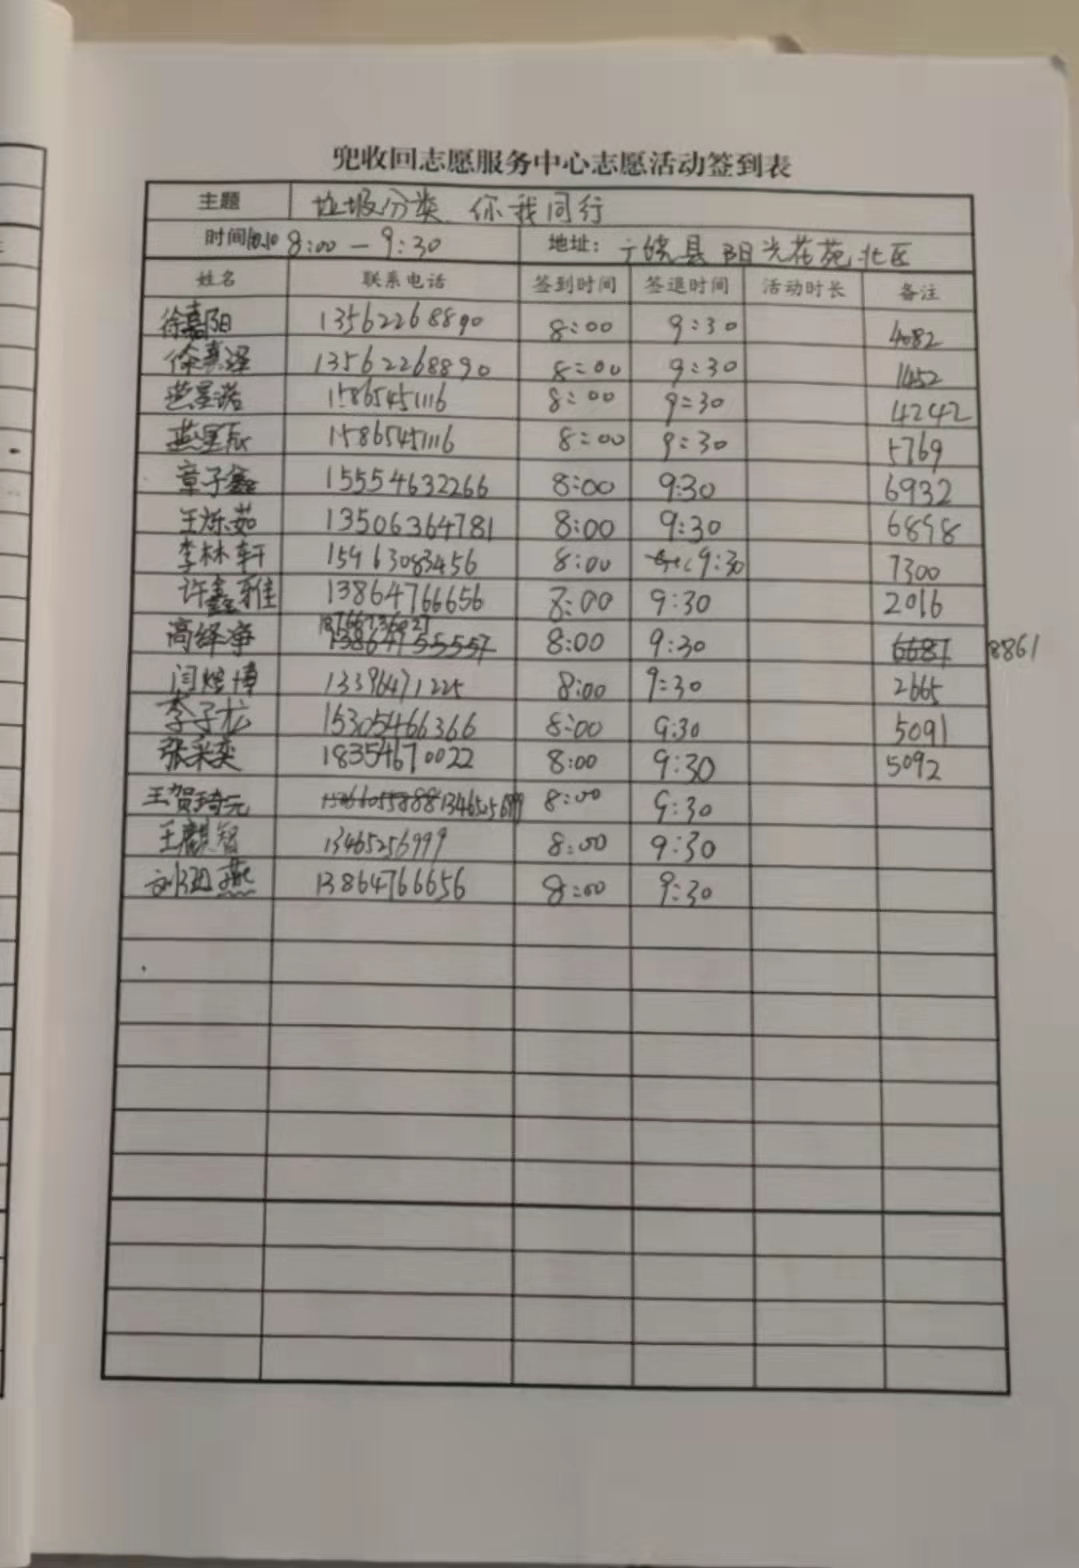 兜收回志愿服务中心志愿活动签到表
主题 垃圾分类 你我同行
时间 10.10 8:00 — 9:30 地址: 广饶县 阳光花苑北区
姓名 联系电话 签到时间 签退时间 活动时长 备注
徐嘉阳 13562268890 8:00 9:30 4082
13562268890 8:00 9:30 1652
15865451116 8:00 9:30 4242
15865451116 8:00 9:30 5769
章子鑫 15554632266 8:00 9:30 6932
王烁茹 13506364781 8:00 9:30 6898
李林轩 15963083456 8:00 9:30 7300
许鑫雅 13864766656 8:00 9:30 2016
高绎净 8:00 9:30 6681 8861
闫煜博 13396471225 8:00 9:30 2665
李子龙 15305466366 8:00 9:30 5091
张采奕 18354670022 8:00 9:30 5092
王贺琦元 8:00 9:30
王麒智 13465256999 8:00 9:30
13864766656 8:00 9:30